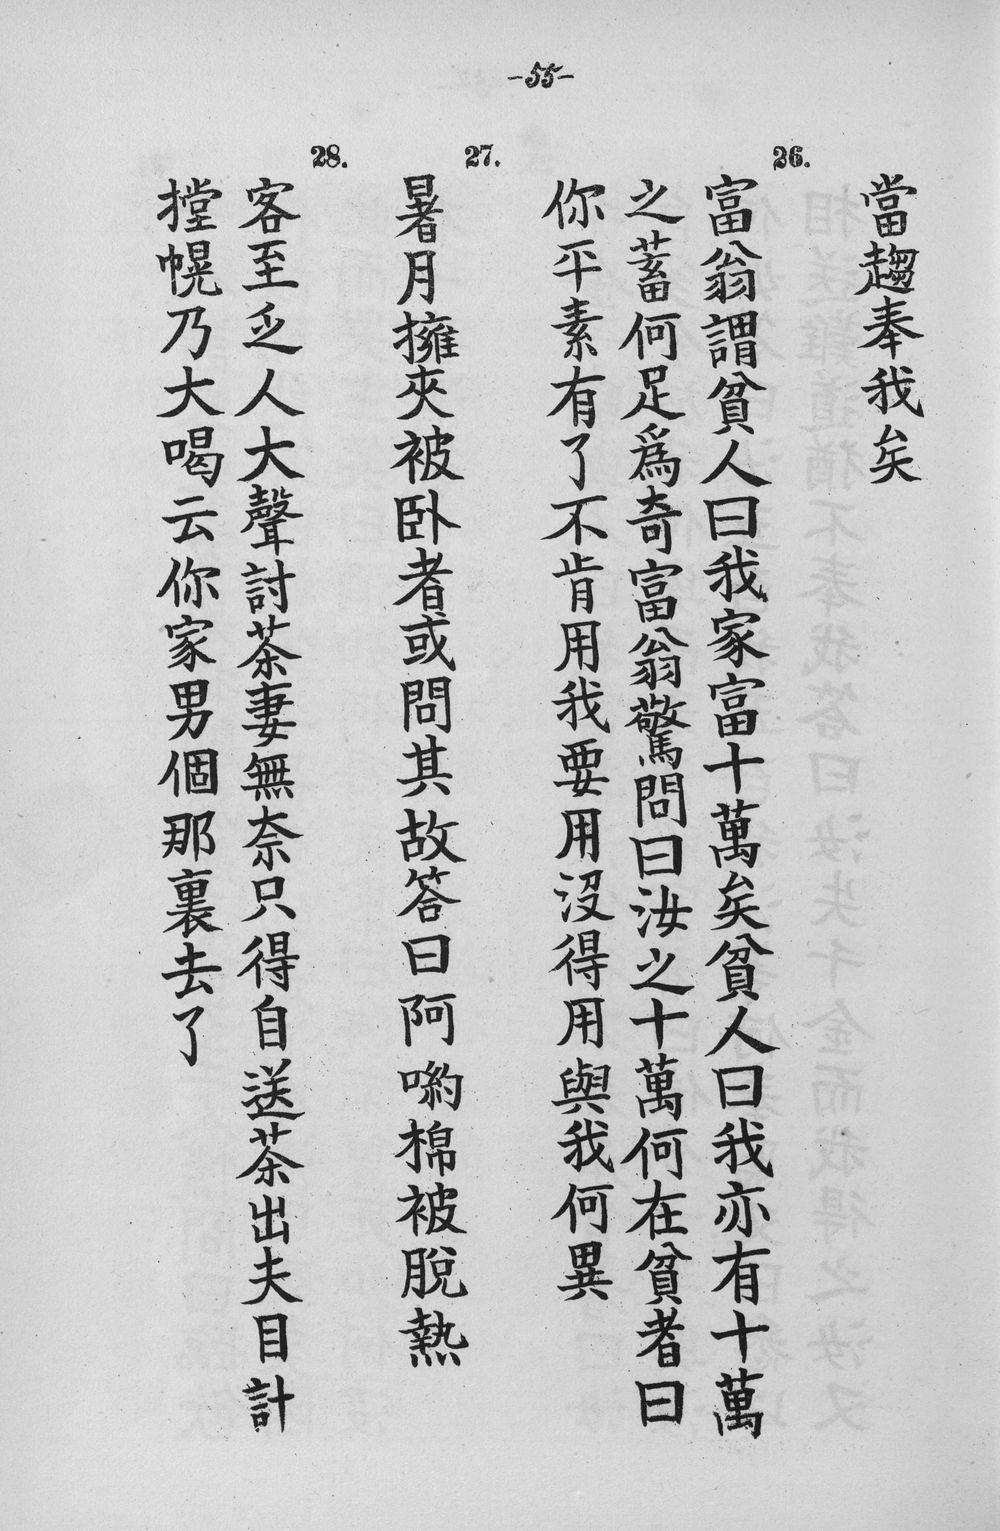 -55-
當趨奉我矣
26.
富翁謂貧人曰我家富十萬矣貧人曰我亦有十萬
之蓄何足爲奇富翁驚問曰汝之十萬何在貧者曰
你平素有了不肯用我要用沒得用與我何異
27.
暑月擁夾被卧者或問其故答曰阿喲棉被脫熱
28.
客至乏人大聲討茶妻無奈只得自送茶出夫目計
摚幌乃大喝云你家男個那裏去了